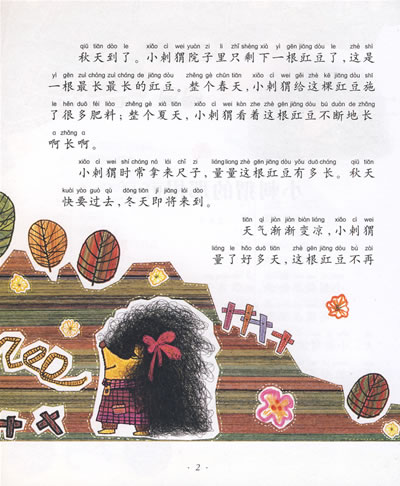 qiū tiān dào le xiǎo cì wei yuàn zi li zhǐ shèng xià yì gēn jiāng dòu le zhè shì
秋天到了。小刺猬院子里只剩下一根豇豆了，这是
yì gēn zuì cháng zuì cháng de jiāng dòu zhěng gè chūn tiān xiǎo cì wei gěi zhè kē jiāng dòu shī
一根最长最长的豇豆。整个春天，小刺猬给这棵豇豆施
le hěn duō féi liào zhěng gè xià tiān xiǎo cì wei kàn zhe zhè gēn jiāng dòu bú duàn de zhǎng
了很多肥料；整个夏天，小刺猬看着这根豇豆不断地长
a zhǎng a
啊长啊。
xiǎo cì wei shí cháng ná lái chǐ zi liáng liang zhè gēn jiāng dòu yǒu duō cháng qiū tiān
小刺猬时常拿来尺子，量量这根豇豆有多长。秋天
kuài yào guò qù dōng tiān jí jiāng lái dào
快要过去，冬天即将来到。
tiān qì jiàn jiàn biàn liáng xiǎo cì wei
天气渐渐变凉，小刺猬
liáng le hǎo duō tiān zhè gēn jiāng dòu bú zài
量了好多天，这根豇豆不再
· 2 ·